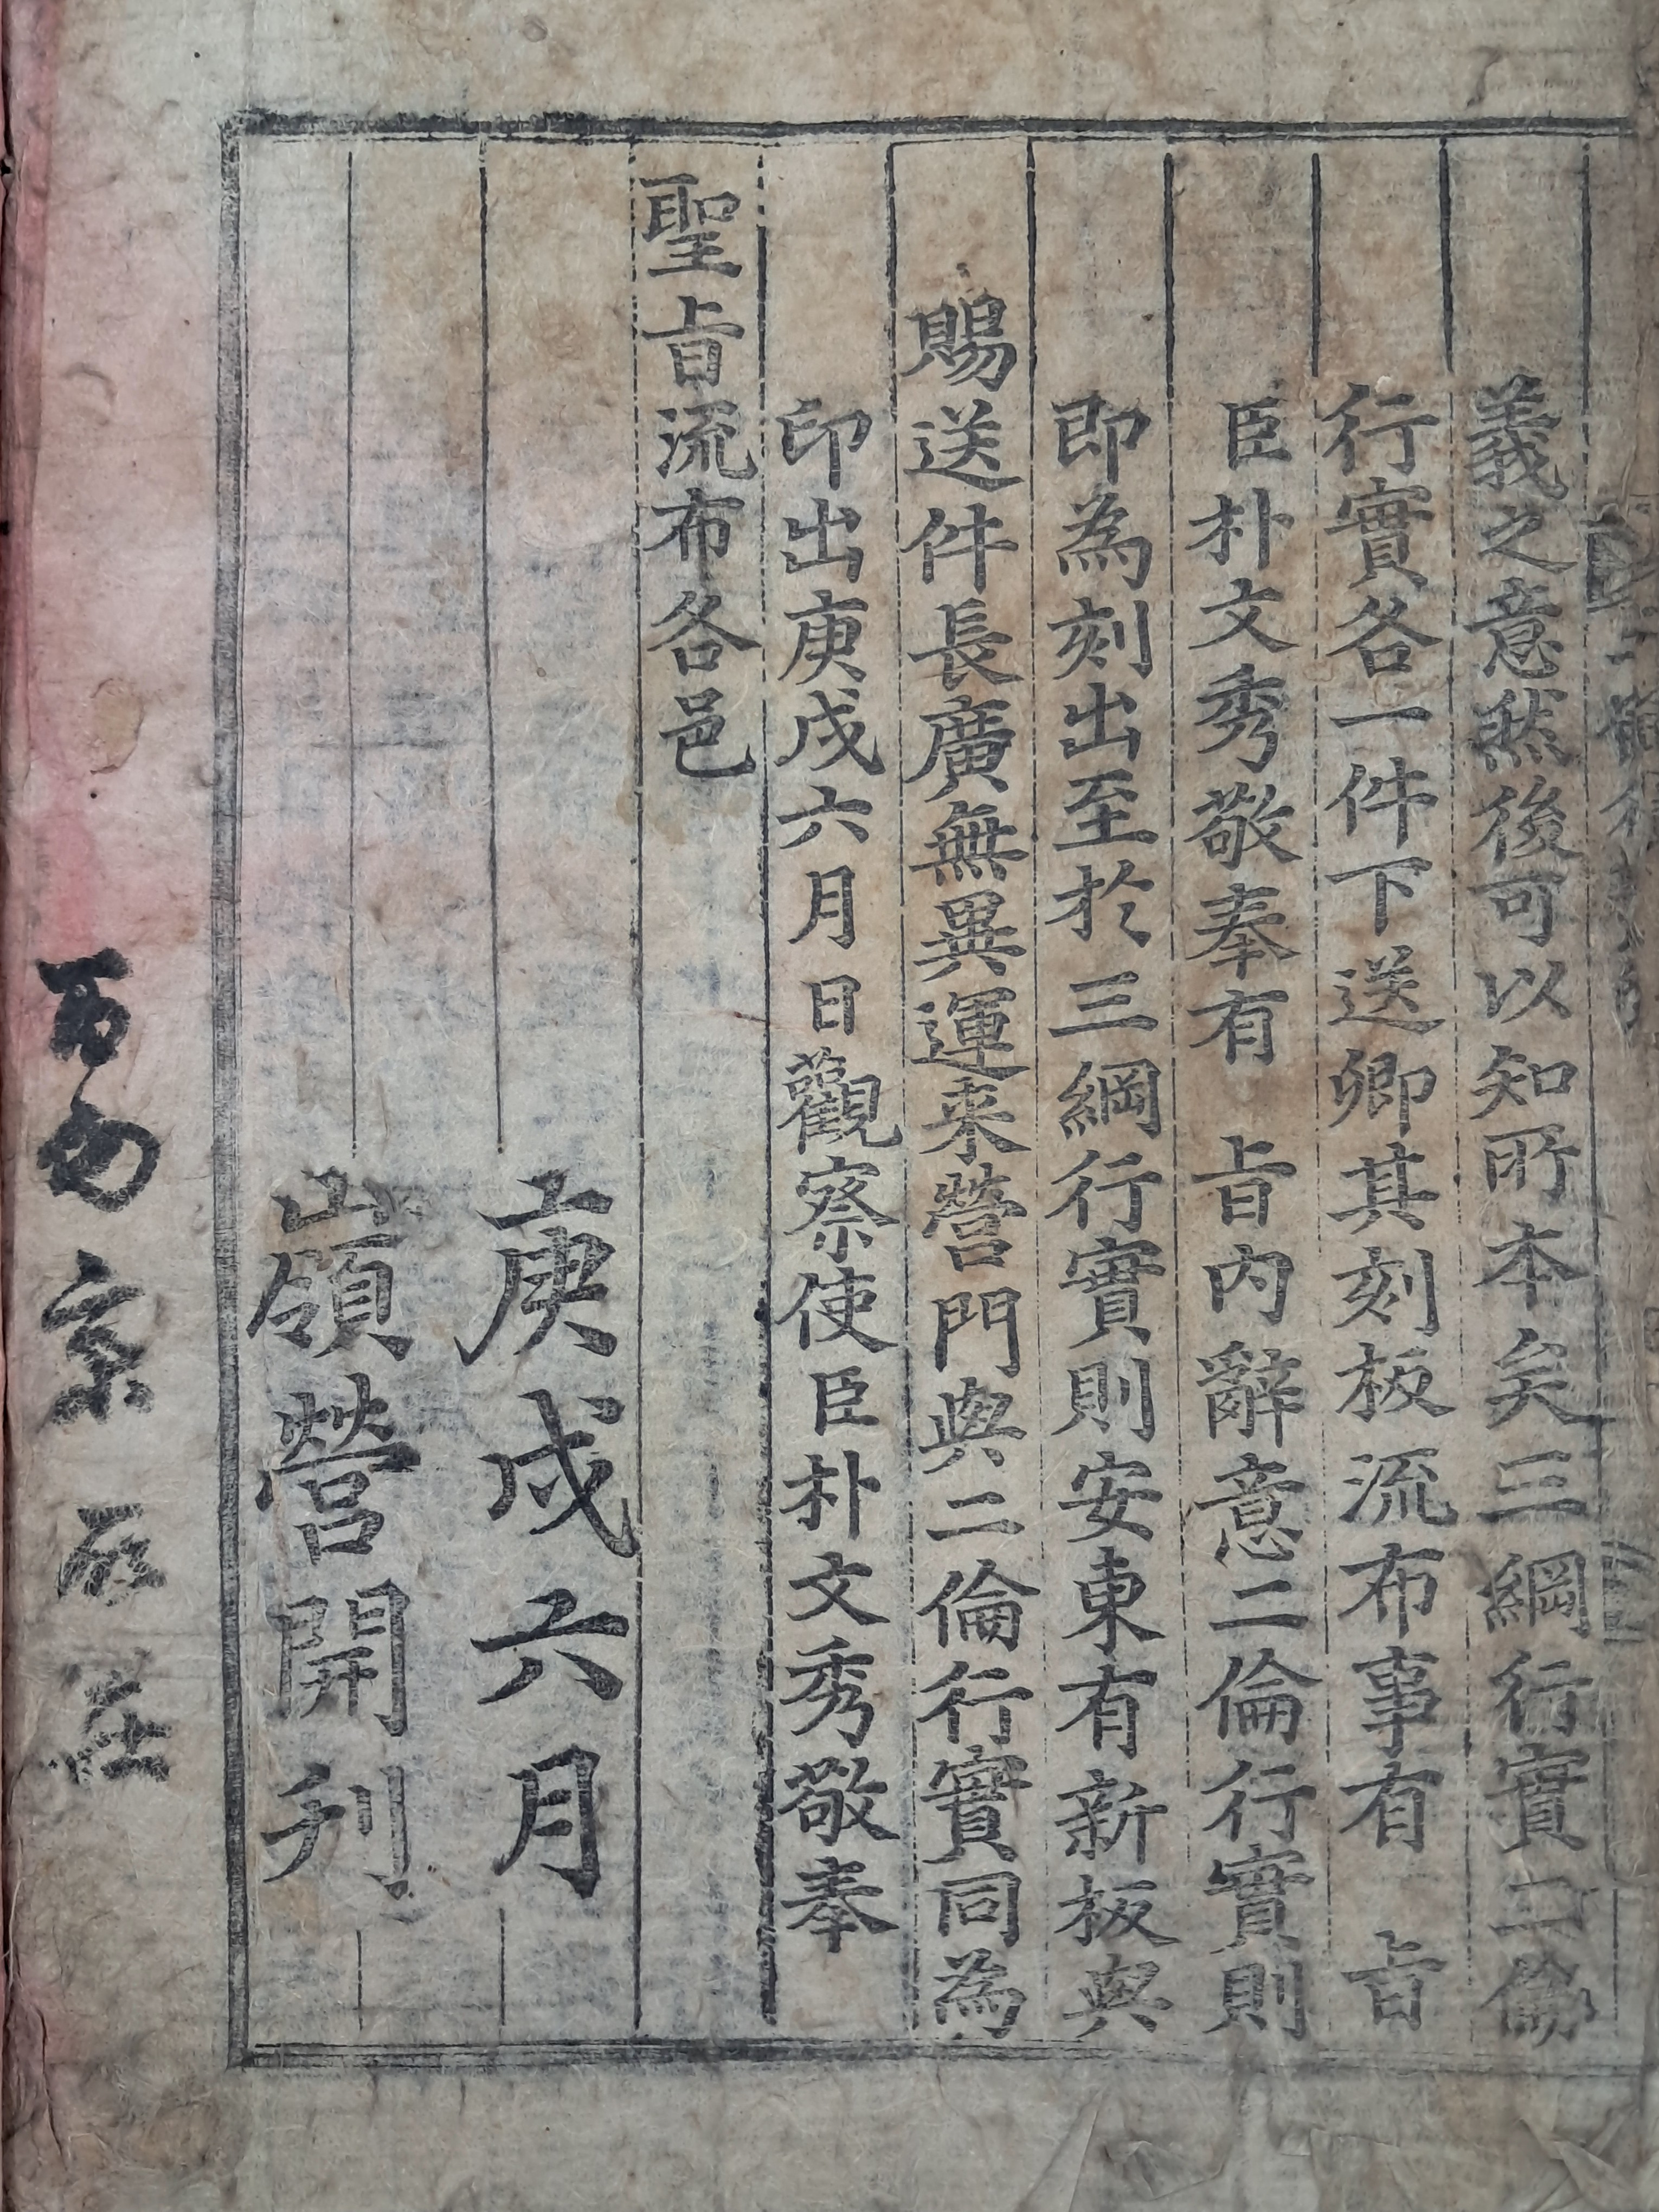 義之意然後可以知所本矣三綱行實二倫
行實各一件下送卿其刻板流布事有 旨
臣朴文秀敬奉有 旨內辭意二倫行實則
即為刻出至於三綱行實則安東有新板與
賜送件長廣無異運来營門與二倫行實同為
印出庚戌六月日觀察使臣朴文秀敬奉
聖旨流布各邑
庚戌六月
嶺營開刊